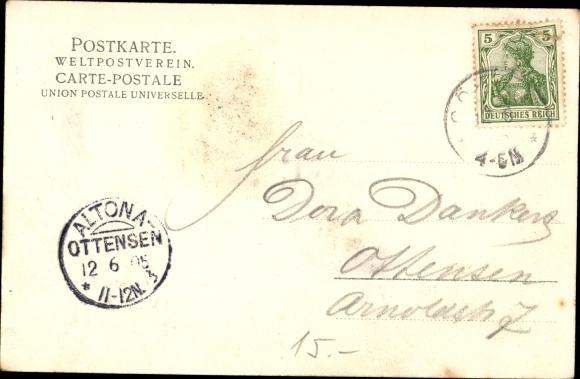 POSTKARTE.
WELTPOSTVEREIN.
CARTE-POSTALE
UNION POSTALE UNIVERSELLE.
5 5
DEUTSCHES REICH
4-5N
*
ALTONA-
OTTENSEN
12 6 05
* 11-12N. 3
Frau
Dora Dankers
Ottensen
Arnoldstr 7
15.-